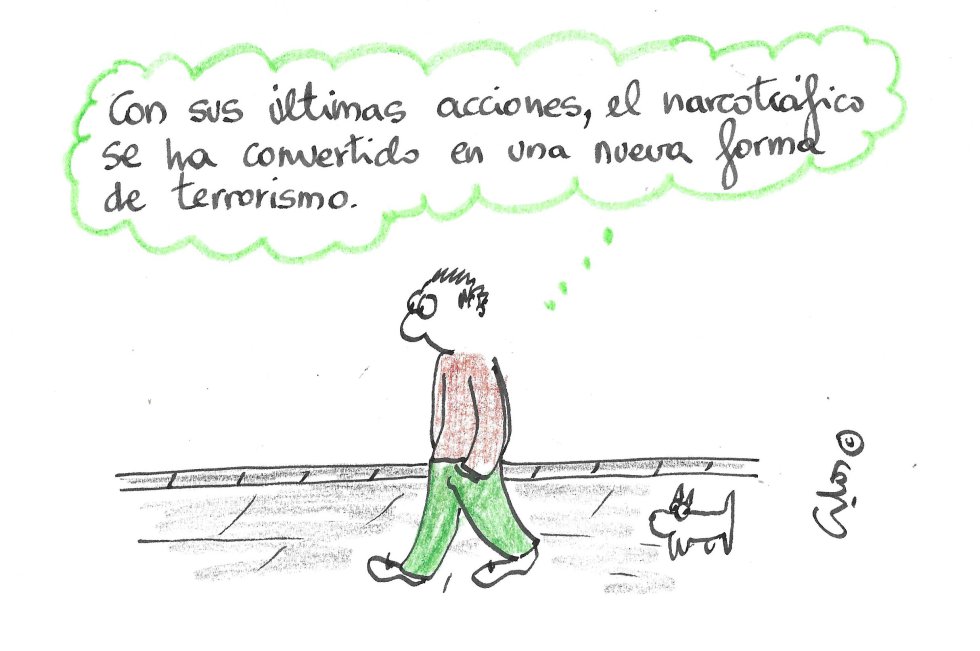 Con sus últimas acciones, el narcotráfico
se ha convertido en una nueva forma
de terrorismo.
©